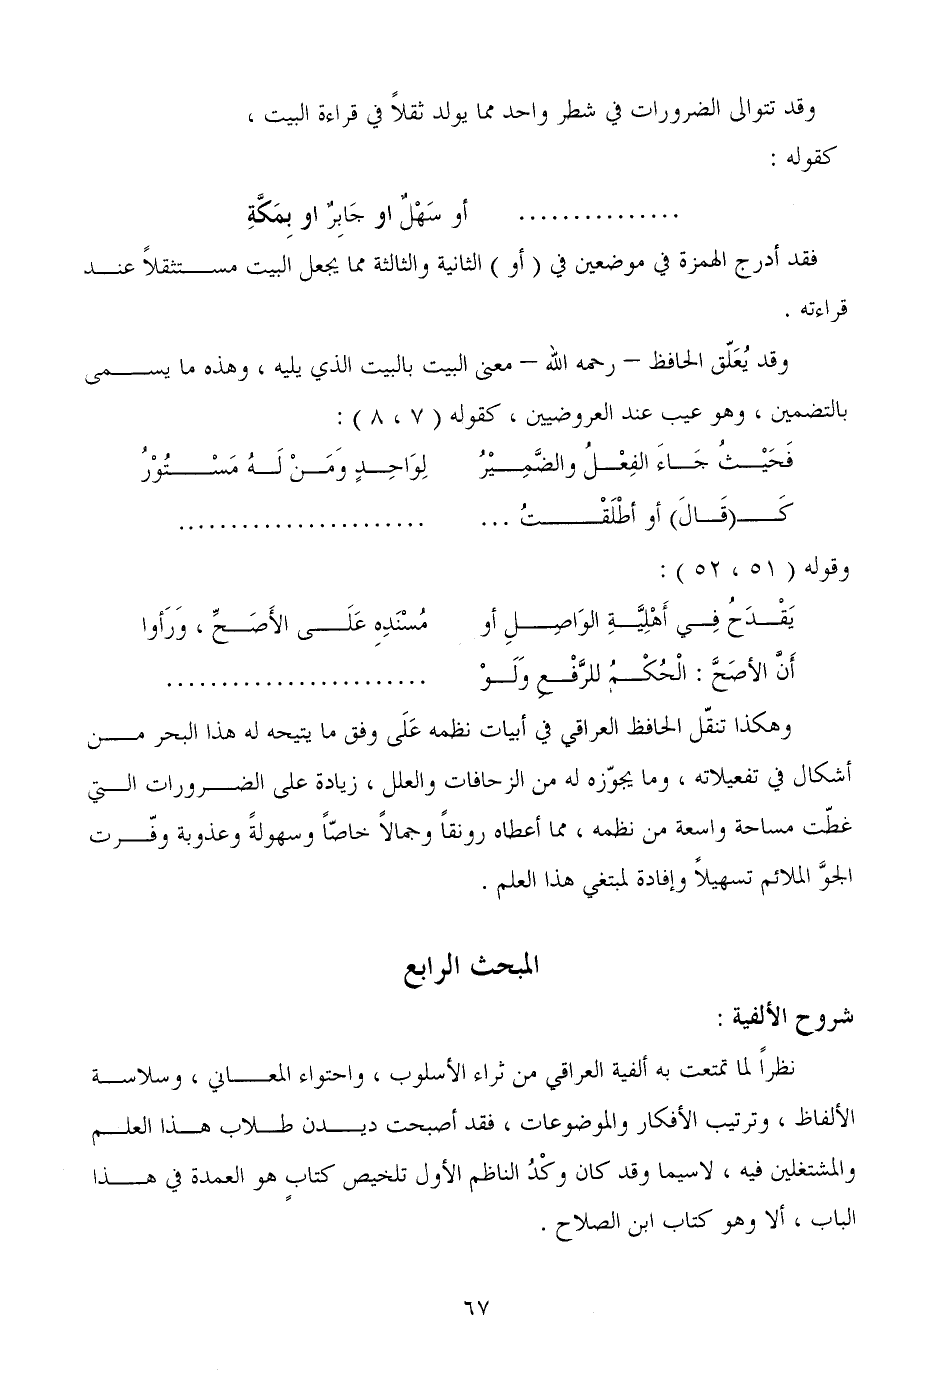 وقد تتوالى الضرورات في شطر واحد مما يولد ثقلاً في قراءة البيت ،
كقوله :
............... أو سَهْلٌ او جَابِرٌ او بِمَكَّةِ
فقد أدرج الهمزة في موضعين في ( أو ) الثانية والثالثة مما يجعل البيت مستثقلاً عند
قراءته .
وقد يُعَلّق الحافظ – رحمه الله – معنى البيت بالبيت الذي يليه ، وهذه ما يسمى
بالتضمين ، وهو عيب عند العروضيين ، كقوله ( ٧ ، ٨ ) :
فَحَيْثُ جَاءَ الفِعْلُ والضَّمِيْرُ لِوَاحِدٍ وَمَنْ لَهُ مَسْتُوْرُ
كَـ(قَالَ) أو أطْلَقْتُ ... .......................
وقوله ( ٥١ ، ٥٢ ) :
يَقْدَحُ فِي أَهْلِيَّةِ الوَاصِلِ أو مُسْنَدِهِ عَلَى الأَصَحِّ ، وَرَأَوا
أَنَّ الأصَحَّ : الْحُكْمُ للرَّفْعِ وَلَوْ ........................
وهكذا تنقّل الحافظ العراقي في أبيات نظمه عَلَى وفق ما يتيحه له هذا البحر من
أشكال في تفعيلاته ، وما يجوّزه له من الزحافات والعلل ، زيادة على الضرورات التي
غطّت مساحة واسعة من نظمه ، مما أعطاه رونقاً وجمالاً خاصّاً وسهولةً وعذوبة وفّرت
الجوَّ الملائم تسهيلاً وإفادة لمبتغي هذا العلم .
المبحث الرابع
شروح الألفية :
نظراً لما تمتعت به ألفية العراقي من ثراء الأسلوب ، واحتواء المعاني ، وسلاسة
الألفاظ ، وترتيب الأفكار والموضوعات ، فقد أصبحت ديدن طلاب هذا العلم
والمشتغلين فيه ، لاسيما وقد كان وكْدُ الناظم الأول تلخيص كتابٍ هو العمدة في هذا
الباب ، ألا وهو كتاب ابن الصلاح .
٦٧